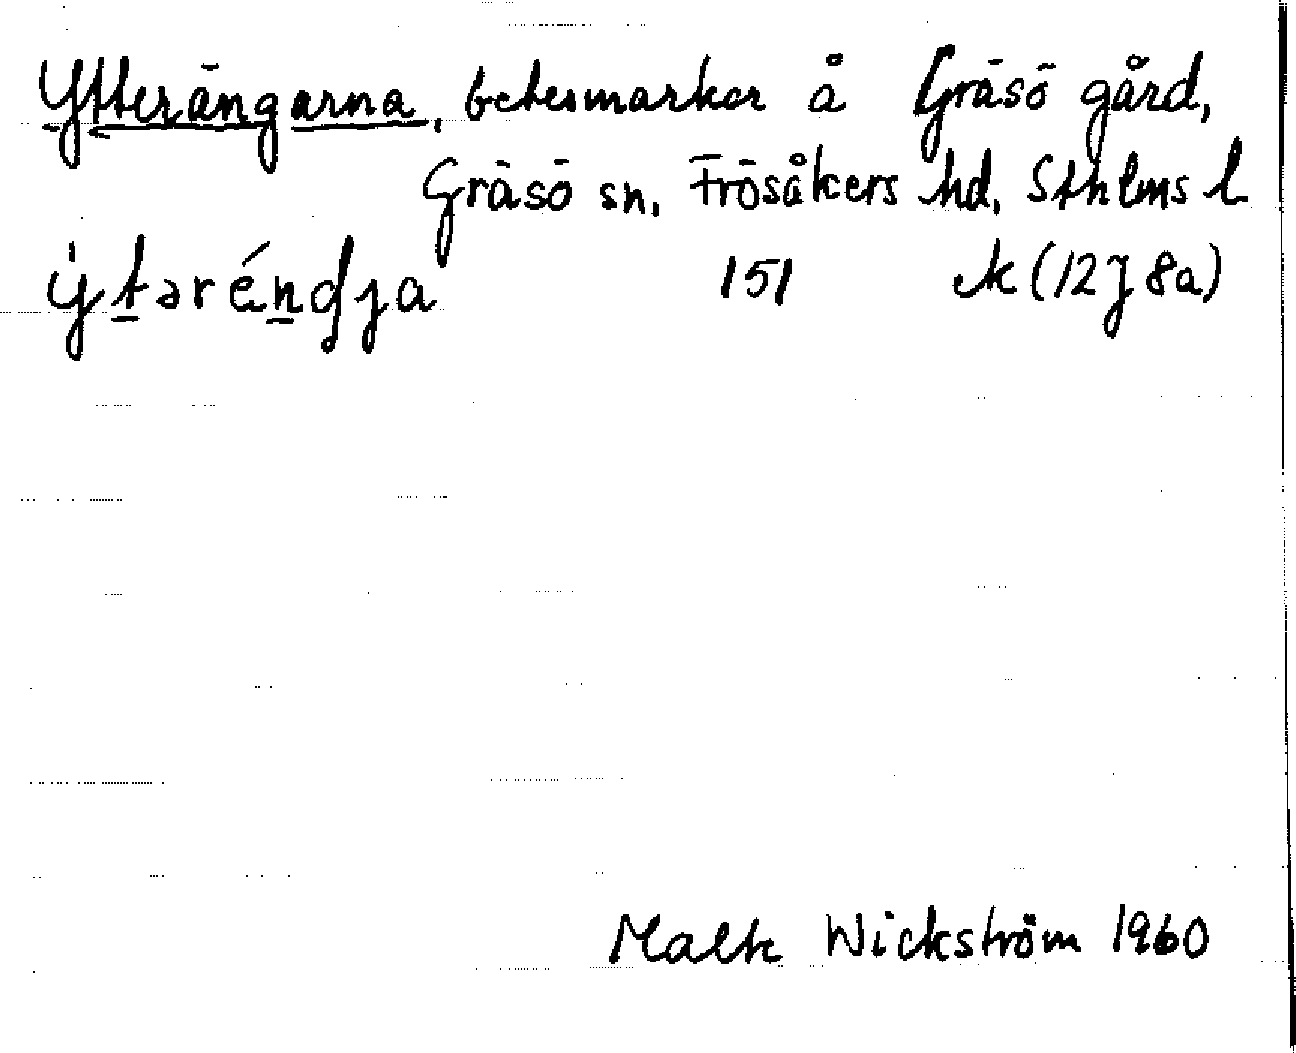 Ytterängarna, betesmarker å Gräsö gård,
Gräsö sn, Frösåkers hd, Sthlms l
ýtəréndja 151 ek (12J 8a)
Maltk Wickström 1960